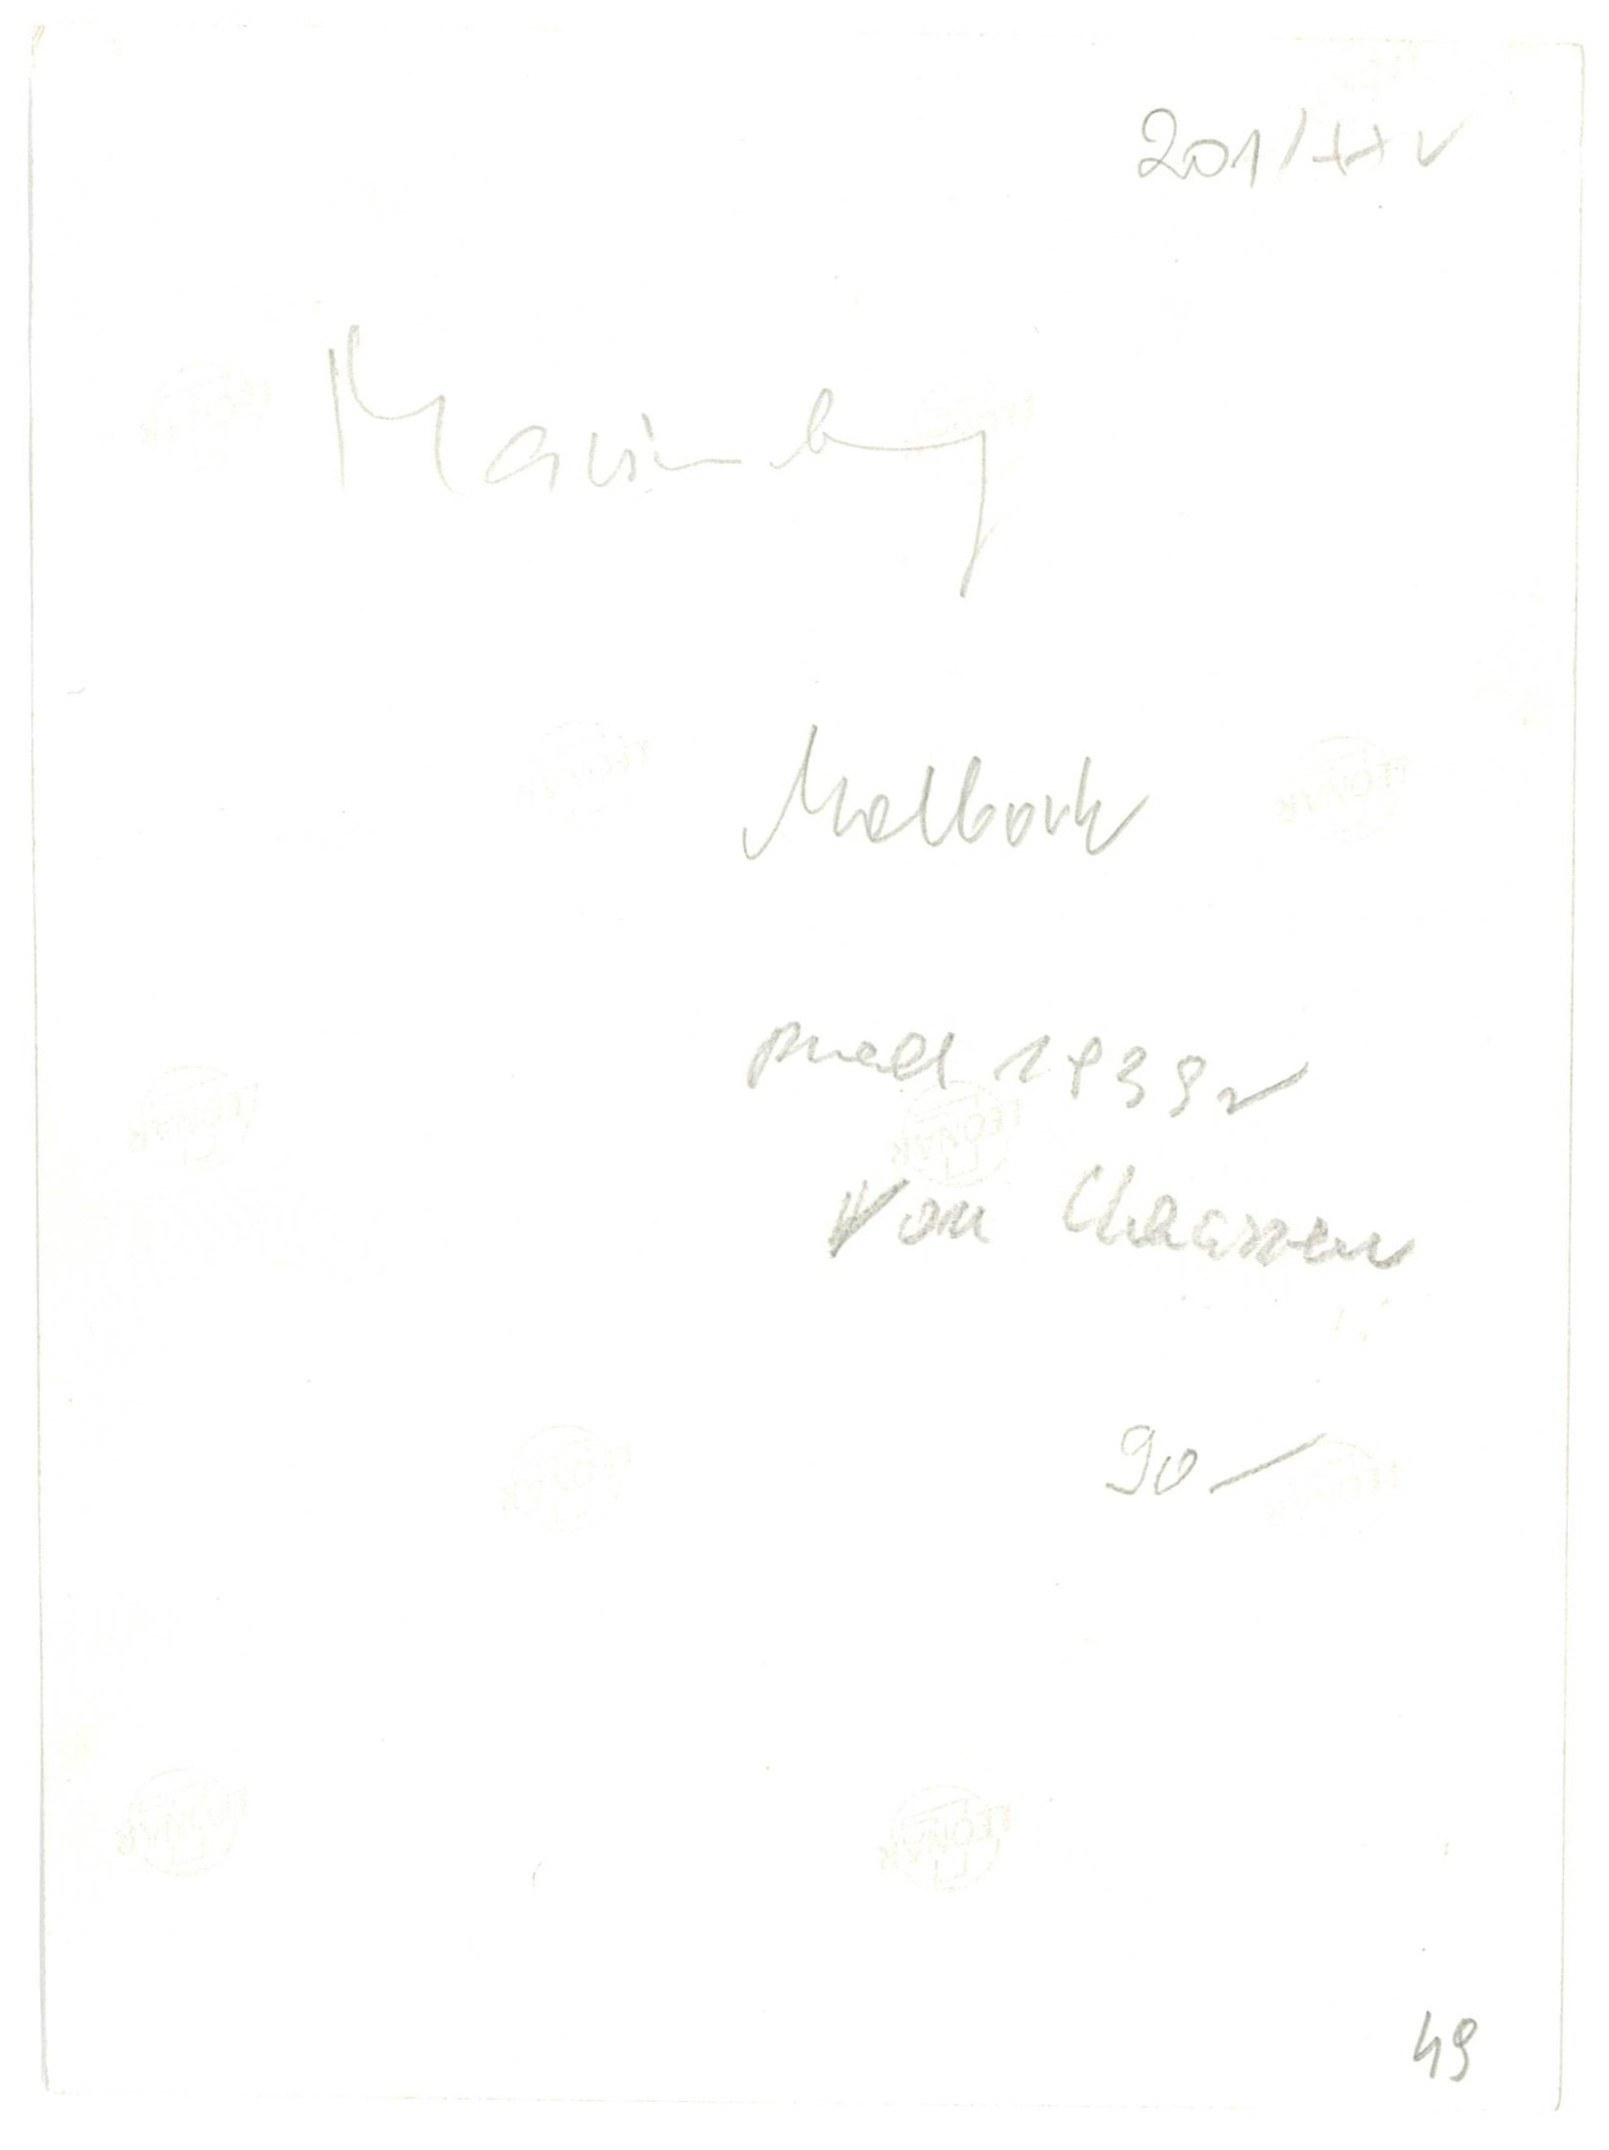 201/XXV
Marienburg
Malbork
przed 1939 r
Von Claassen
90 —
49